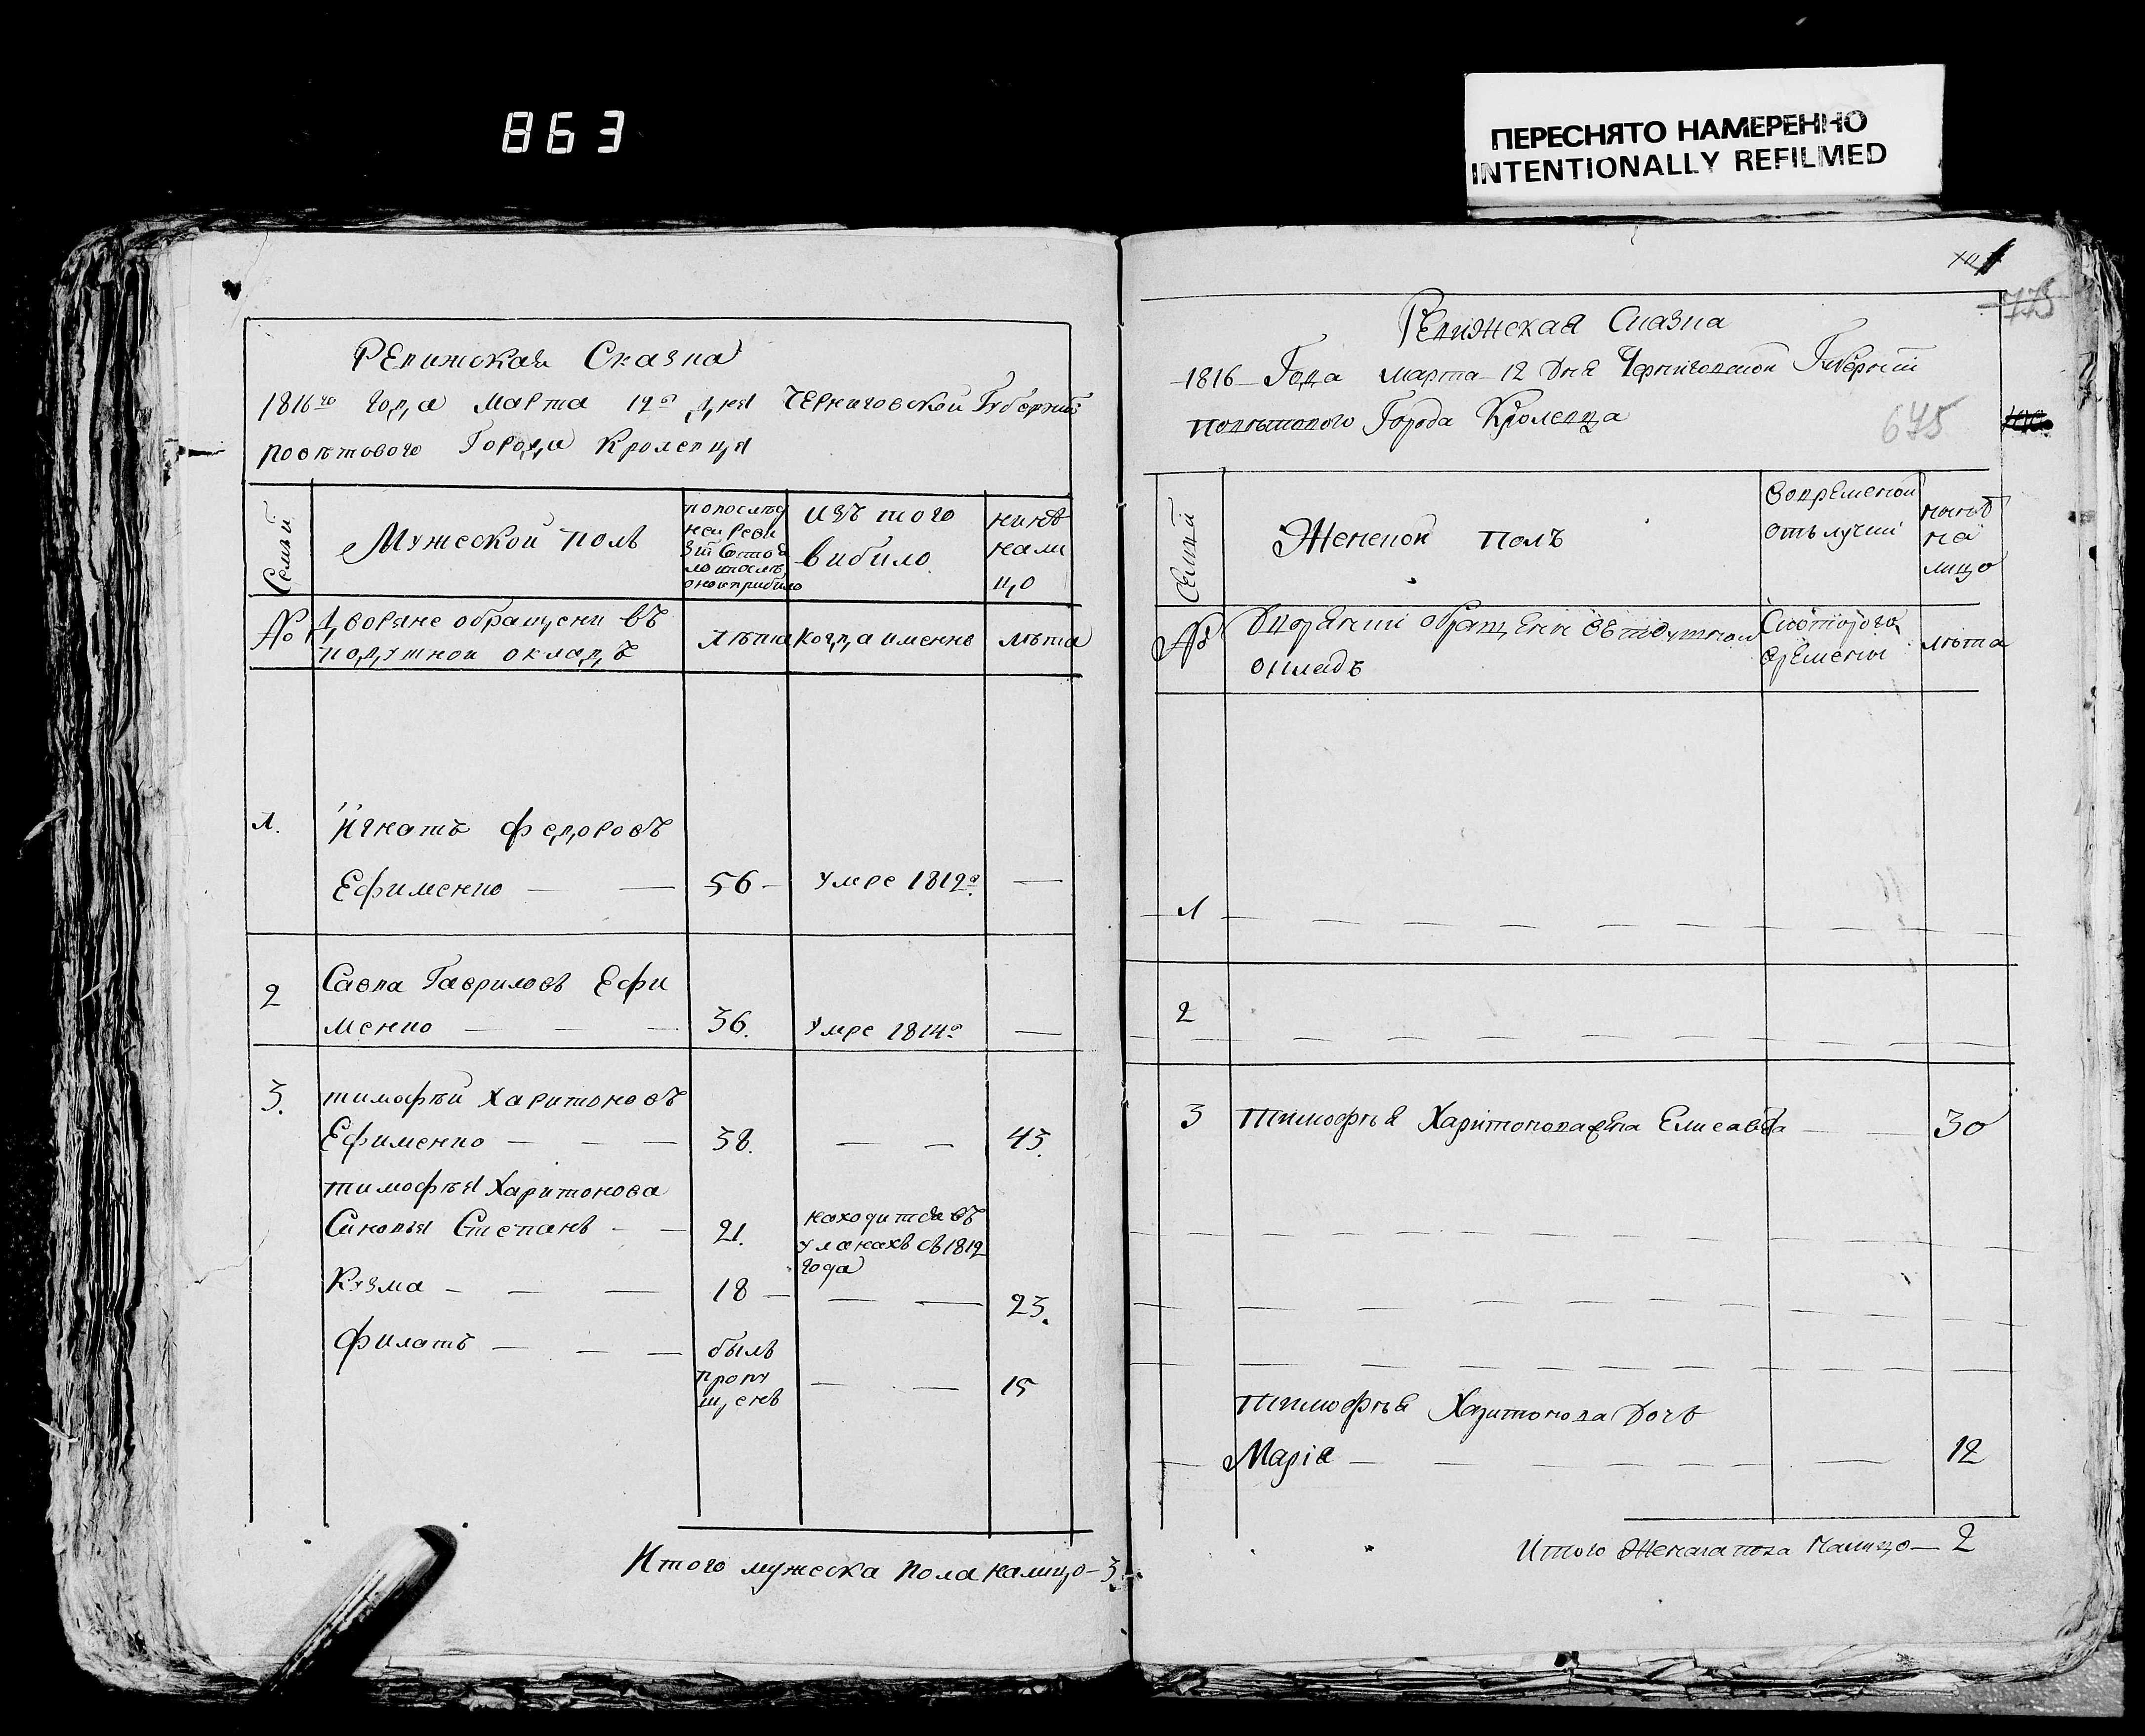 863
ПЕРЕСНЯТО НАМЕРЕННО
INTENTIONALLY REFILMED
Ревижская Сказка
1816го года марта 12о дня Черниговской Губернии
повѣтового Города Кролевца
Семьи
Мужеской полъ
попослед
ней реви
зіи состоя
ло и после
оной прибило
изъ того
вибило
нинѣ
нали
цо
№
Дворяне обращени въ
подушной окладъ
лѣта
когда именно
лѣта
1.
Игнатъ Федоровъ
Ефименко — — 56 — умре 1812о. —
2
Савка Гавриловъ Ефи
менко — — — 36. умре 1814о —
3.
тимофѣй Харитоновъ
Ефименко — — — 38. — — 45.
тимофѣя Харитонова
Синовья Степанъ — — 21.
находится въ
уланахъ съ 1812
года
Кузма — — — 18 — — — 23.
Филатъ — — —
былъ
пропу
щенъ
— — 15
Итого мужеска пола налицо — 3.
775
Ревижская Сказка
1816 Года марта 12 дня Черниговской Губерніи
повѣтового Города Кролевца
675
Семьи
Женской полъ
Вовременой
отълучки
нинѣ
на
лицо
№
Дворянки обращены въ подушной
окладъ
Скоторого
времены
лѣта
1
2
3 Тимофѣя Харитонова жена Елисавета — — 30
Тимофѣя Харитонова дочь
Марія — — — — — — 12
Итого Женска пола налицо — 2